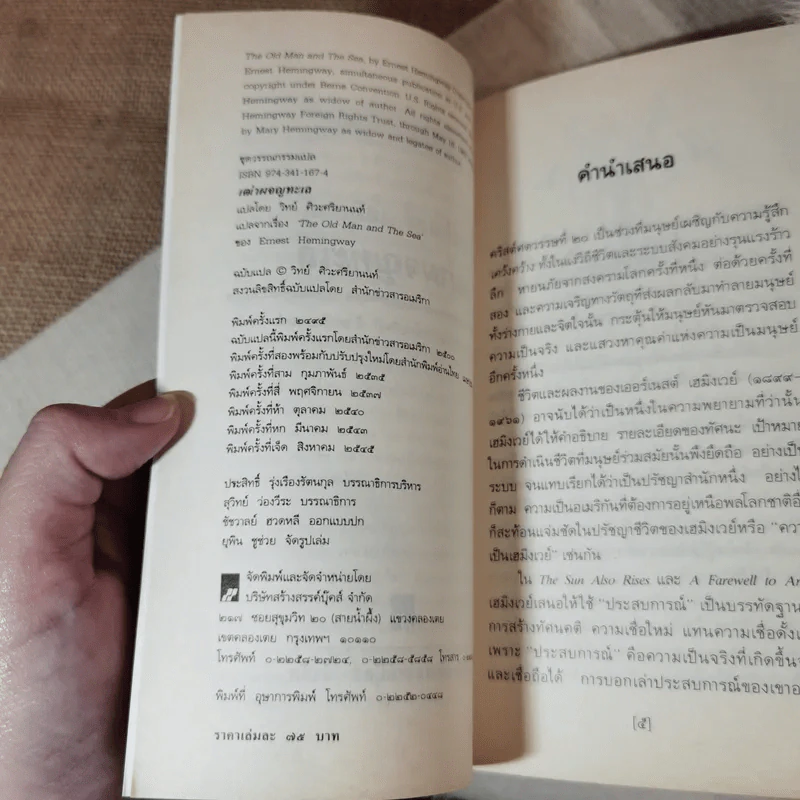 The Old Man and The Sea, by Ernest Hemingway
Ernest Hemingway, simultaneous publication in U.S.
copyright under Berne Convention. U.S. Rights
Hemingway as widow of author. All rights
Hemingway Foreign Rights Trust, through May
by Mary Hemingway as widow and legatee of author.
ชุดวรรณกรรมแปล
ISBN 974-341-167-4
เฒ่าผจญทะเล
แปลโดย วิทย์ ศิวะศริยานนท์
แปลจากเรื่อง 'The Old Man and The Sea'
ของ Ernest Hemingway
ฉบับแปล © วิทย์ ศิวะศริยานนท์
สงวนลิขสิทธิ์ฉบับแปลโดย สำนักข่าวสารอเมริกา
พิมพ์ครั้งแรก ๒๔๙๕
ฉบับแปลนี้พิมพ์ครั้งแรกโดยสำนักข่าวสารอเมริกา ๒๕๐๐
พิมพ์ครั้งที่สองพร้อมกับปรับปรุงใหม่โดยสำนักพิมพ์อ่านไทย
พิมพ์ครั้งที่สาม กุมภาพันธ์ ๒๕๓๕
พิมพ์ครั้งที่สี่ พฤศจิกายน ๒๕๓๗
พิมพ์ครั้งที่ห้า ตุลาคม ๒๕๔๐
พิมพ์ครั้งที่หก มีนาคม ๒๕๔๓
พิมพ์ครั้งที่เจ็ด สิงหาคม ๒๕๔๕
ประสิทธิ์ รุ่งเรืองรัตนกุล บรรณาธิการบริหาร
สุวิทย์ ว่องวีระ บรรณาธิการ
ชัชวาลย์ ฮวดหลี ออกแบบปก
ยุพิน ชูช่วย จัดรูปเล่ม
จัดพิมพ์และจัดจำหน่ายโดย
บริษัทสร้างสรรค์บุ๊คส์ จำกัด
๒๑๗ ซอยสุขุมวิท ๒๐ (สายน้ำผึ้ง) แขวงคลองเตย
เขตคลองเตย กรุงเทพฯ ๑๐๑๑๐
โทรศัพท์ ๐-๒๒๕๘-๒๗๒๔, ๐-๒๒๕๘-๕๘๕๘ โทรสาร
พิมพ์ที่ อุษาการพิมพ์ โทรศัพท์ ๐-๒๒๕๒-๐๔๔๘
ราคาเล่มละ ๗๕ บาท
คำนำเสนอ
คริสต์ศตวรรษที่ ๒๐ เป็นช่วงที่มนุษย์เผชิญกับความรู้สึก
เคว้งคว้าง ทั้งในแง่วิถีชีวิตและระบบสังคมอย่างรุนแรงร้าว
ลึก หายนภัยจากสงครามโลกครั้งที่หนึ่ง ต่อด้วยครั้งที่
สอง และความเจริญทางวัตถุที่ส่งผลกลับมาทำลายมนุษย์
ทั้งร่างกายและจิตใจนั้น กระตุ้นให้มนุษย์หันมาตรวจสอบ
ความเป็นจริง และแสวงหาคุณค่าแห่งความเป็นมนุษย์
อีกครั้งหนึ่ง
ชีวิตและผลงานของเออร์เนสต์ เฮมิงเวย์ (๑๘๙๙-
๑๙๖๑) อาจนับได้ว่าเป็นหนึ่งในความพยายามที่ว่านั้น
เฮมิงเวย์ได้ให้คำอธิบาย รายละเอียดของทัศนะ เป้าหมาย
ในการดำเนินชีวิตที่มนุษย์ร่วมสมัยนั้นพึงยึดถือ อย่างเป็น
ระบบ จนแทบเรียกได้ว่าเป็นปรัชญาสำนักหนึ่ง อย่างไร
ก็ตาม ความเป็นอเมริกันที่ต้องการอยู่เหนือพลโลกชาติอื่น
ก็สะท้อนแจ่มชัดในปรัชญาชีวิตของเฮมิงเวย์หรือ "ความ
เป็นเฮมิงเวย์" เช่นกัน
ใน The Sun Also Rises และ A Farewell to
เฮมิงเวย์เสนอให้ใช้ "ประสบการณ์" เป็นบรรทัดฐาน
การสร้างทัศนคติ ความเชื่อใหม่ แทนความเชื่อดั้งเดิม
เพราะ "ประสบการณ์" คือความเป็นจริงที่เกิดขึ้น
และเชื่อถือได้ การบอกเล่าประสบการณ์ของเขา
[๕]